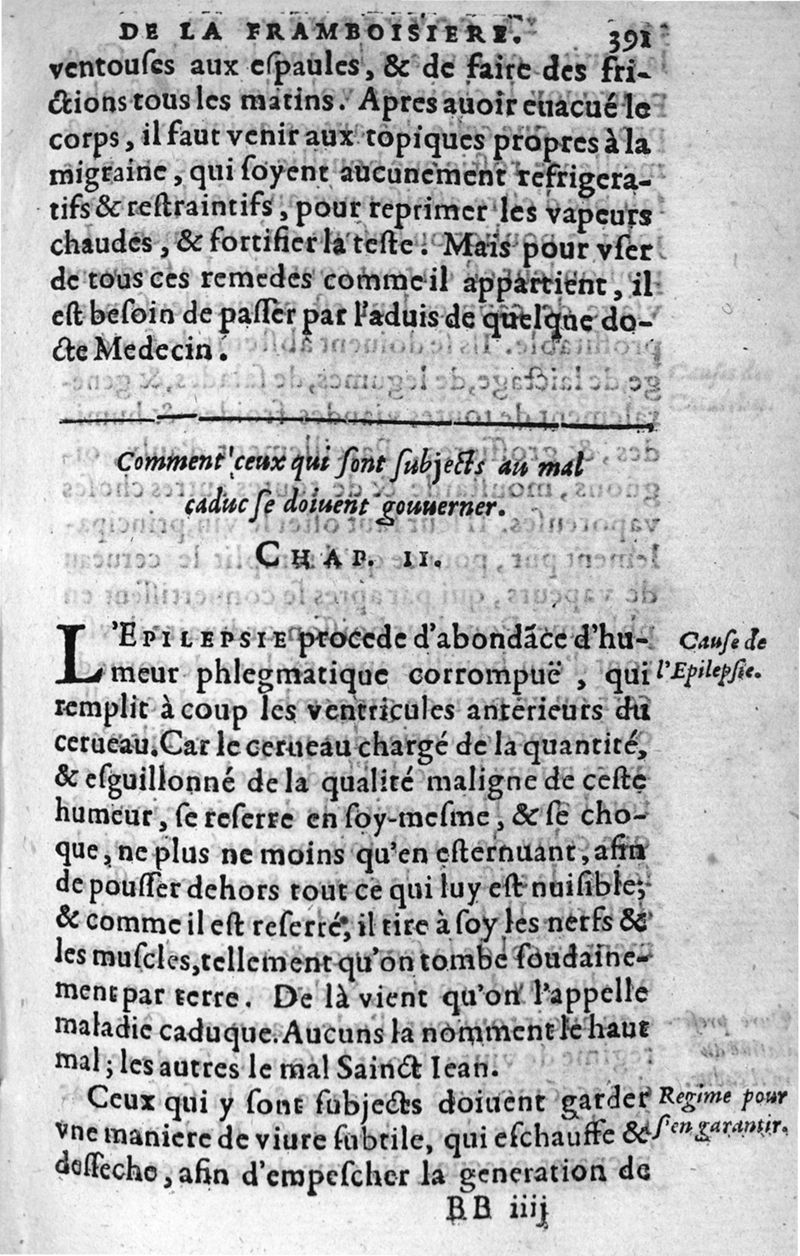 DE LA FRAMBOISIERE. 391
ventouſes aux eſpaules, & de faire des fri-
ctions tous les matins. Apres auoir euacué le
corps, il faut venir aux topiques propres à la
migraine, qui ſoyent aucunement refrigera-
tifs & reſtraintifs, pour reprimer les vapeurs
chaudes, & fortifier la teſte. Mais pour vſer
de tous ces remedes comme il appartient, il
eſt beſoin de paſſer par l'aduis de quelque do-
cte Medecin.
Comment ceux qui ſont ſubjects au mal
caduc ſe doiuent gouuerner.
CHAP. II.
L'EPILEPSIE procede d'abondāce d'hu-
meur phlegmatique corrompuë, qui
remplit à coup les ventricules anterieurs du
cerueau. Car le cerueau chargé de la quantité,
& eſguillonné de la qualité maligne de ceſte
humeur, ſe reſerre en ſoy-meſme, & ſe cho-
que, ne plus ne moins qu'en eſternuant, afin
de pouſſer dehors tout ce qui luy eſt nuiſible;
& comme il eſt reſerré, il tire à ſoy les nerfs &
les muſcles, tellement qu'on tombe ſoudaine-
ment par terre. De là vient qu'on l'appelle
maladie caduque. Aucuns la nomment le haut
mal; les autres le mal Sainct Iean.
Ceux qui y ſont ſubjects doiuent garder
vne maniere de viure ſubtile, qui eſchauffe &
deſſeche, afin d'empeſcher la generation de
BB iiij
Cauſe de
l'Epilepſie.
Regime pour
ſ'en garantir.